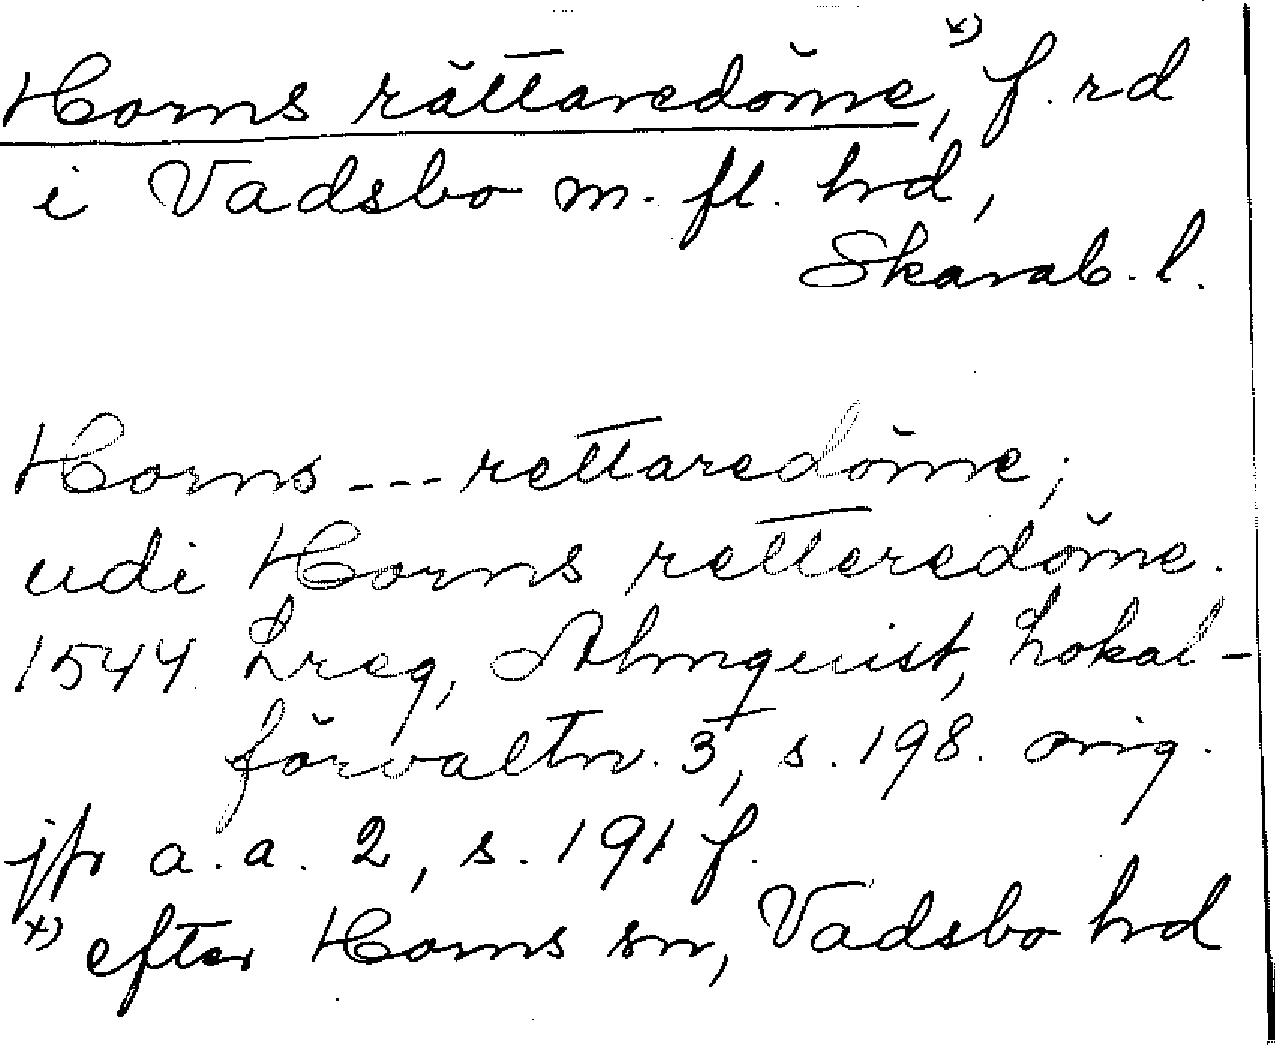 Horns rättaredöme,x) f. rd
i Vadsbo m. fl. hrd,
Skarab. l.
Horns --- rettaredöme;
udi Horns retteredöme.
1544 Lreg, Almquist, Lokal-
förvaltn. 3, s. 198. orig.
jfr a. a. 2, s. 191 f.
x) efter Horns sn, Vadsbo hrd